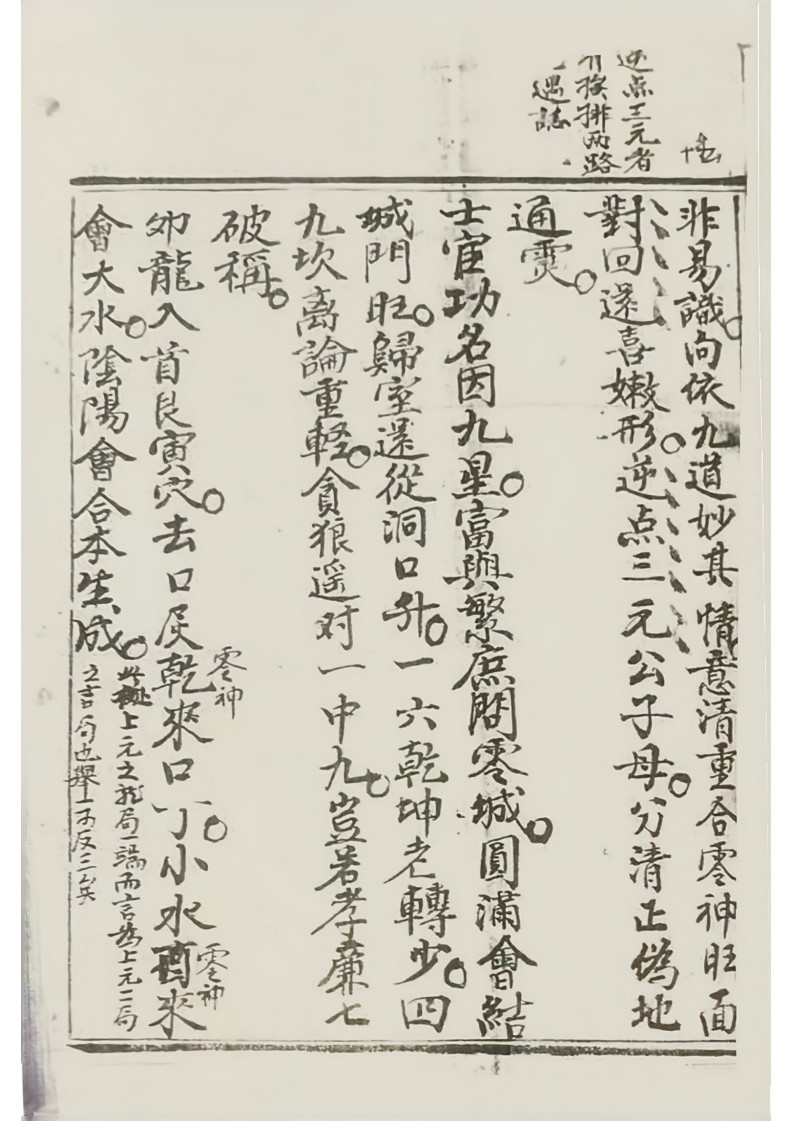 逆点三元者
有挨排两路
遇誌
非易識。向依九道妙其情意清重合零神旺面
對回還喜嫩形。逆点三元公子母。分清正偽地
通霊。
士宦功名因九星。富與繁庶問零城。圓滿會結
城門旺。歸室還從洞口升。一六乾坤老轉少。四
九坎离論重軽。貪狼遥对一中九。豈若孝廉七
破稱。
夘龍入首艮寅穴。去口戻乾來口丁。小水酉來
零神
零神
會大水。陰陽會合本生成。
此極上元之龍局一端而言為上元二局
之言局也舉一可反三矣